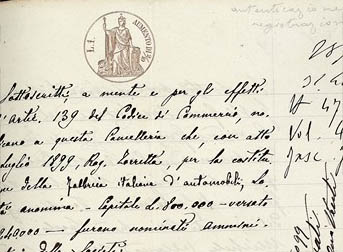 autenticazio
registrazion
L. 1.
AUMENTO DI 2/10
Sottoscritti, a mente e per gli effetti
d'artic. 139 del Codice di Commercio, no-
cano a questa Cancelleria che, con atto
Luglio 1899, Rog. Torretta, per la costitu-
della Fabbrica italiana d'automobili, So-
anonima - Capitale L. 800,000 - versato
240000 - furono nominati amminis-
della Società
47
Vol.
fasc.